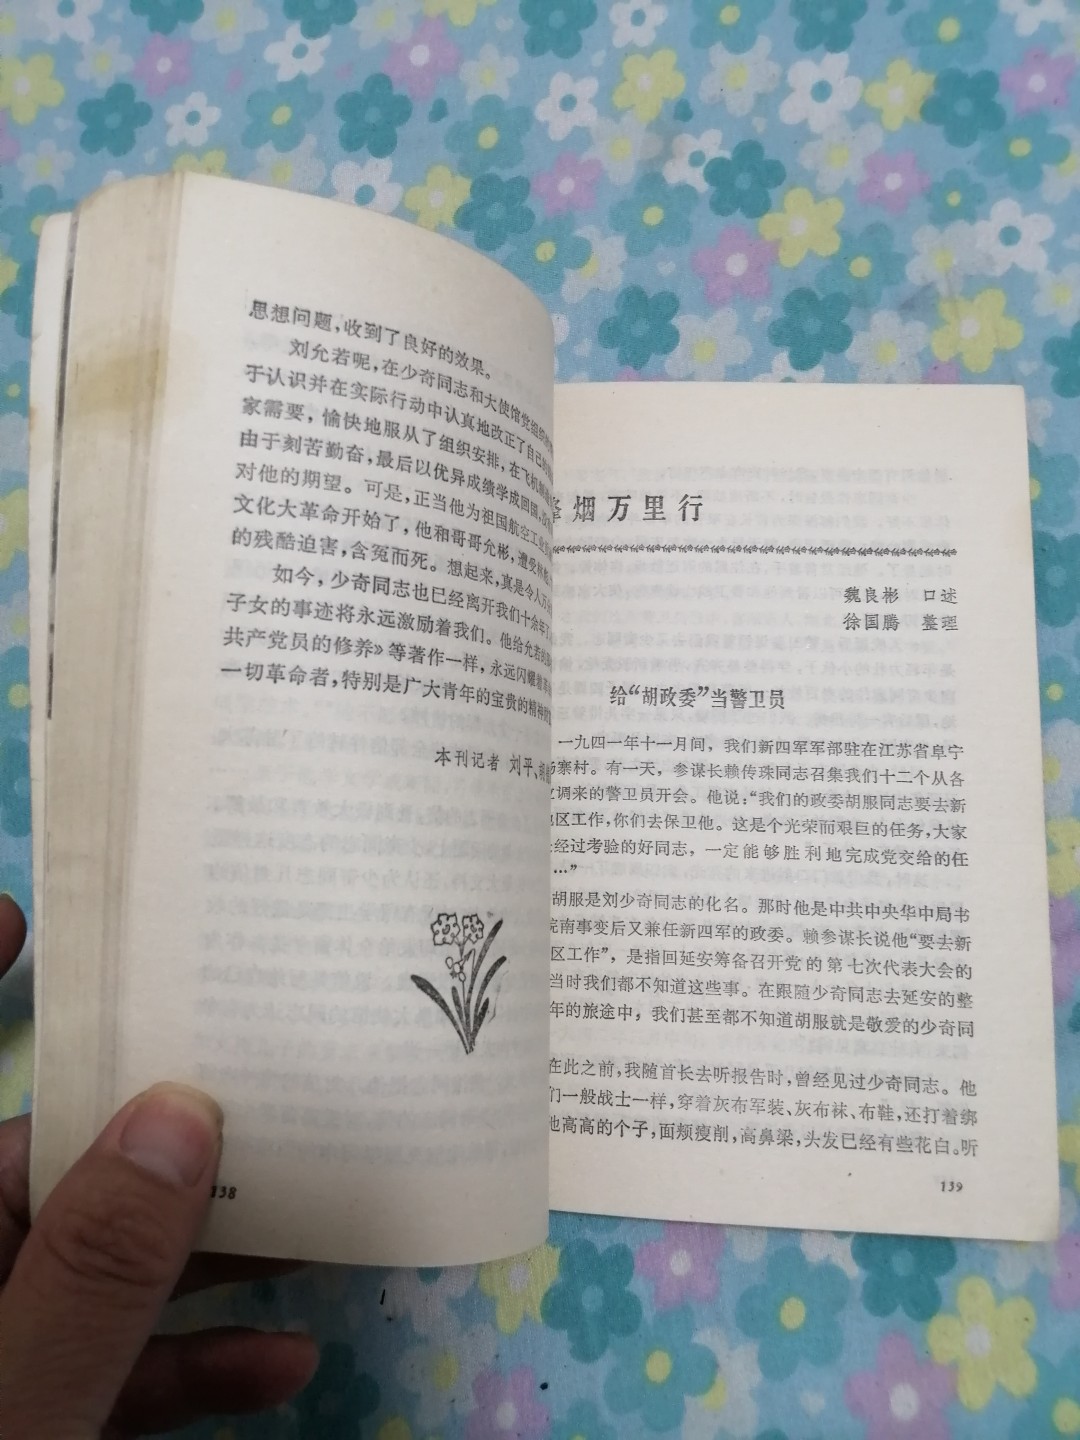 思想问题,收到了良好的效果。
刘允若呢,在少奇同志和大使馆党组织的
于认识并在实际行动中认真地改正了自己的
家需要,愉快地服从了组织安排,在飞机
由于刻苦勤奋,最后以优异成绩学成回国,
对他的期望。可是,正当他为祖国航空工业
文化大革命开始了,他和哥哥允彬,遭受
的残酷迫害,含冤而死。想起来,真是令人万
如今,少奇同志也已经离开我们十余年了
子女的事迹将永远激励着我们。他给允若的
共产党员的修养》等著作一样,永远闪耀
一切革命者,特别是广大青年的宝贵的精神
本刊记者 刘平、
138
烟万里行
魏良彬 口述
徐国腾 整理
给“胡政委”当警卫员
一九四一年十一月间,我们新四军军部驻在江苏省阜宁
寨村。有一天,参谋长赖传珠同志召集我们十二个从各
调来的警卫员开会。他说:“我们的政委胡服同志要去新
区工作,你们去保卫他。这是个光荣而艰巨的任务,大家
经过考验的好同志,一定能够胜利地完成党交给的任
…”
胡服是刘少奇同志的化名。那时他是中共中央华中局书
皖南事变后又兼任新四军的政委。赖参谋长说他“要去新
区工作”,是指回延安筹备召开党的第七次代表大会的
当时我们都不知道这些事。在跟随少奇同志去延安的整
年的旅途中,我们甚至都不知道胡服就是敬爱的少奇同
在此之前,我随首长去听报告时,曾经见过少奇同志。他
们一般战士一样,穿着灰布军装、灰布袜、布鞋,还打着绑
他高高的个子,面颊瘦削,高鼻梁,头发已经有些花白。听
139